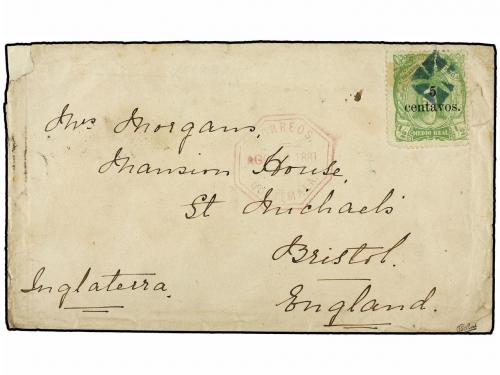 5
centavos.
MEDIO REAL
Mrs Morgans,
CORREOS.
1881
Mansion House,
St Michaels
Bristol.
Inglaterra.
England.